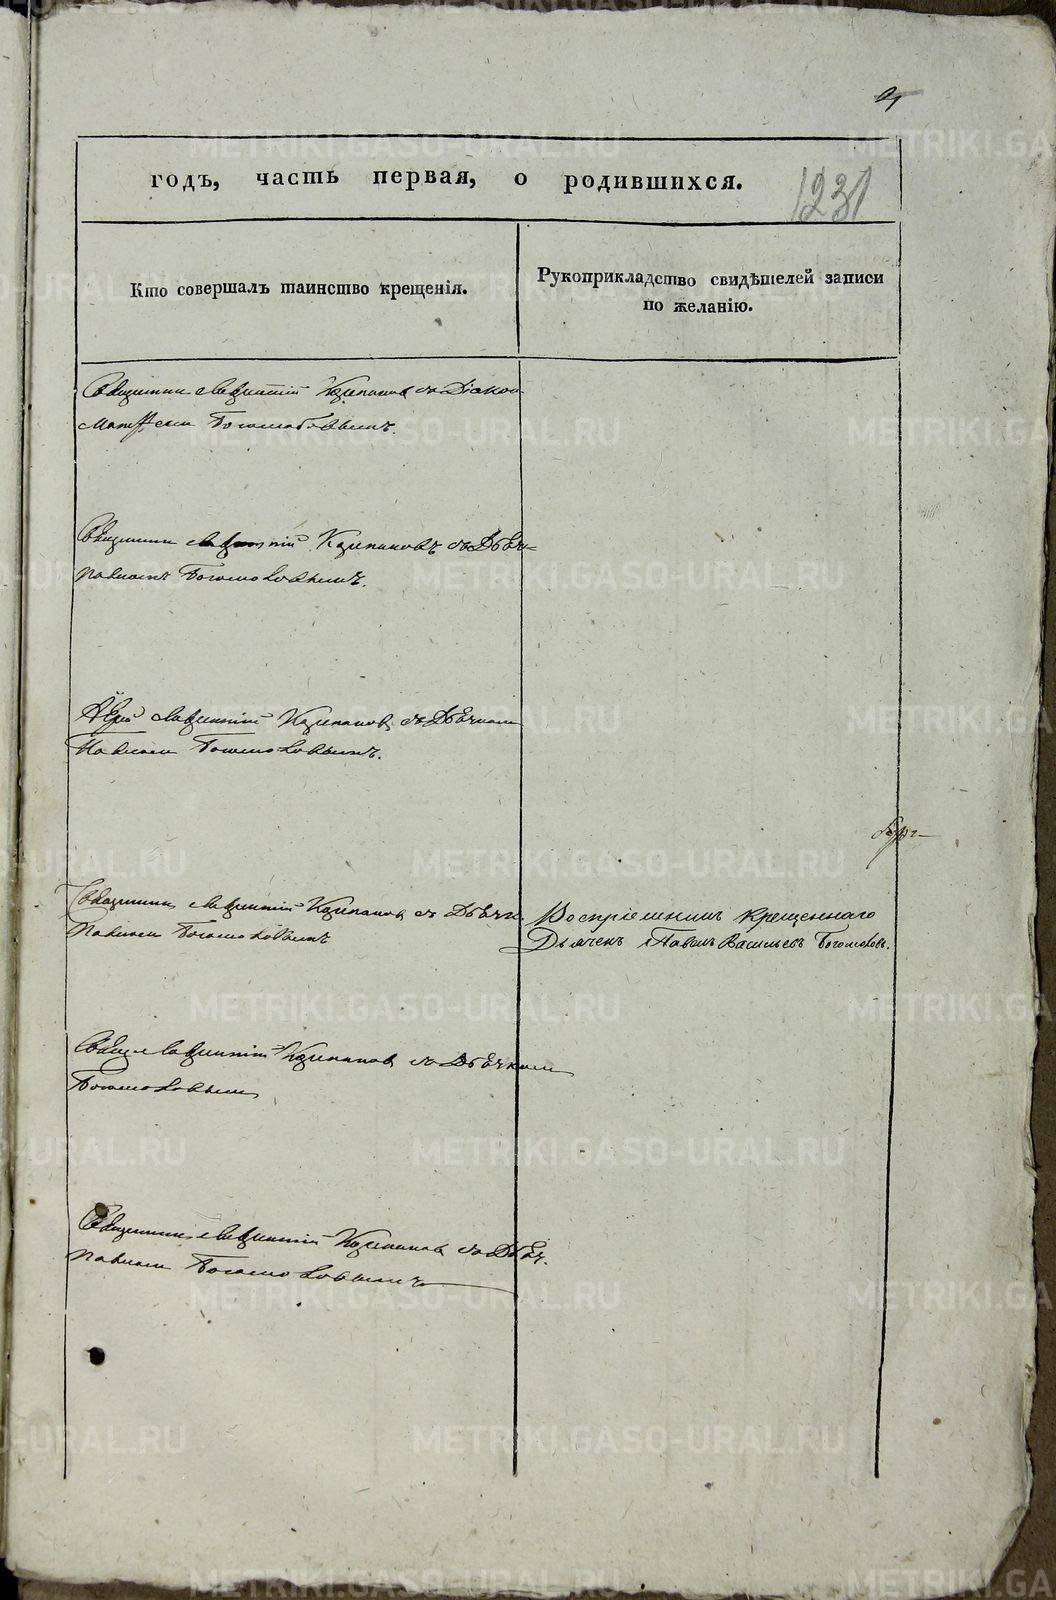 годъ, часть первая, о родившихся.
1231
Кто совершалъ таинство крещенія.
Рукоприкладство свидѣтелей записи
по желанію.
Священник Лаврентій Карпановъ съ Діакон
Богомоловымъ.
Священник Лаврентій Карпановъ съ Дьяч=
Павломъ Богомоловымъ.
Іерей Лаврентій Карпановъ съ Дьячком
Павлом Богомоловымъ.
Священник Лаврентій Карпановъ съ Дьячк.
Павлом Богомоловымъ
Воспріемникъ крещеннаго
Дьячекъ Павелъ Васильевъ Богомоловъ.
Свящ. Лаврентій Карпановъ съ Дьячком
Богомоловым
Священник Лаврентій Карпановъ съ Дьяч.
Павлом Богомоловымъ
METRIKI.GASO-URAL.RU